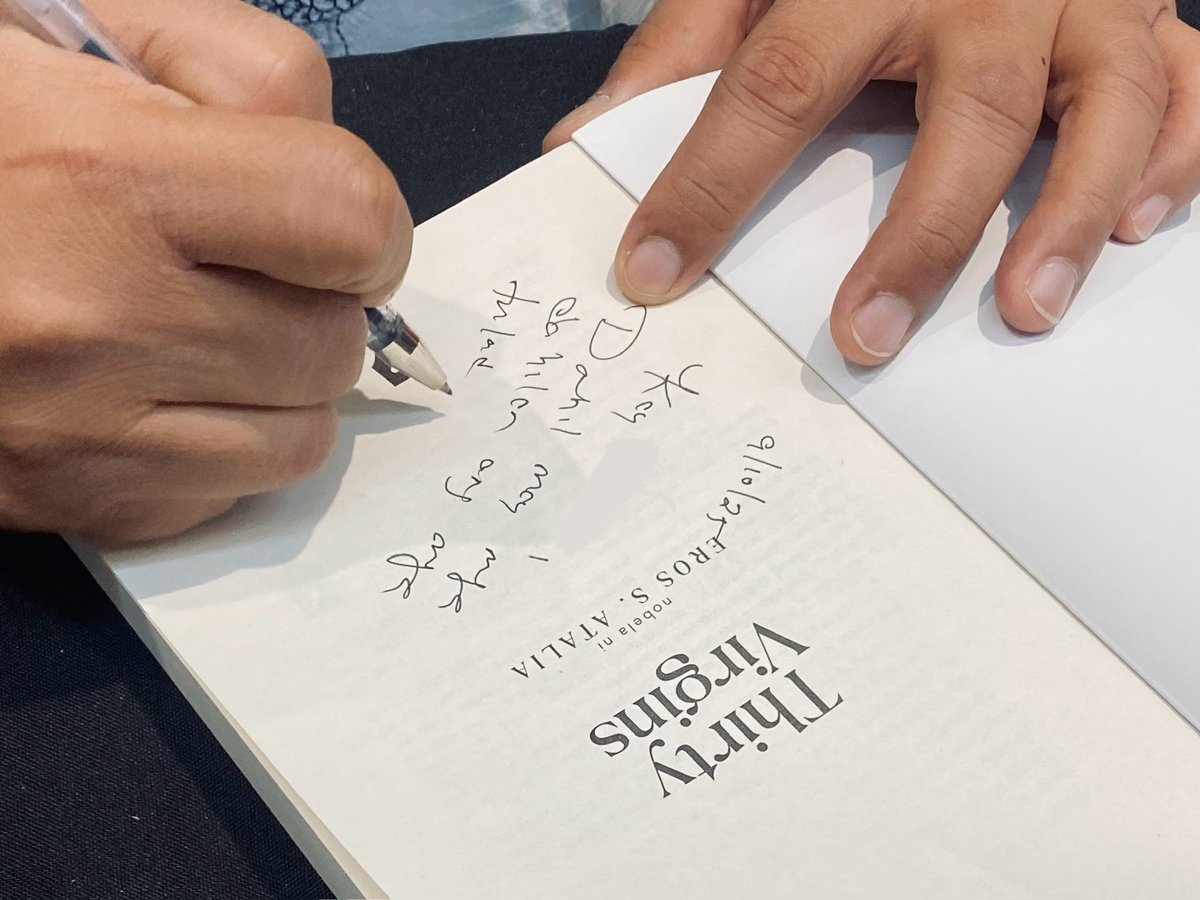 Thirty
Virgins
nobela ni
EROS S. ATALIA
9/10/25
Kay
Dahil may mga
dahilan ang mga
tulad